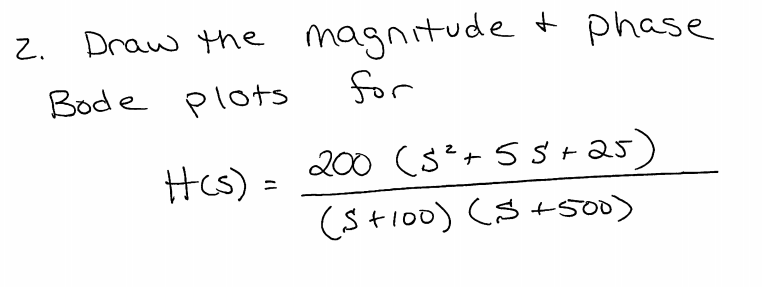 2. Draw the magnitude + phase
Bode plots for
H(s) = 200 (s² + 5s + 25) / (s + 100) (s + 500)